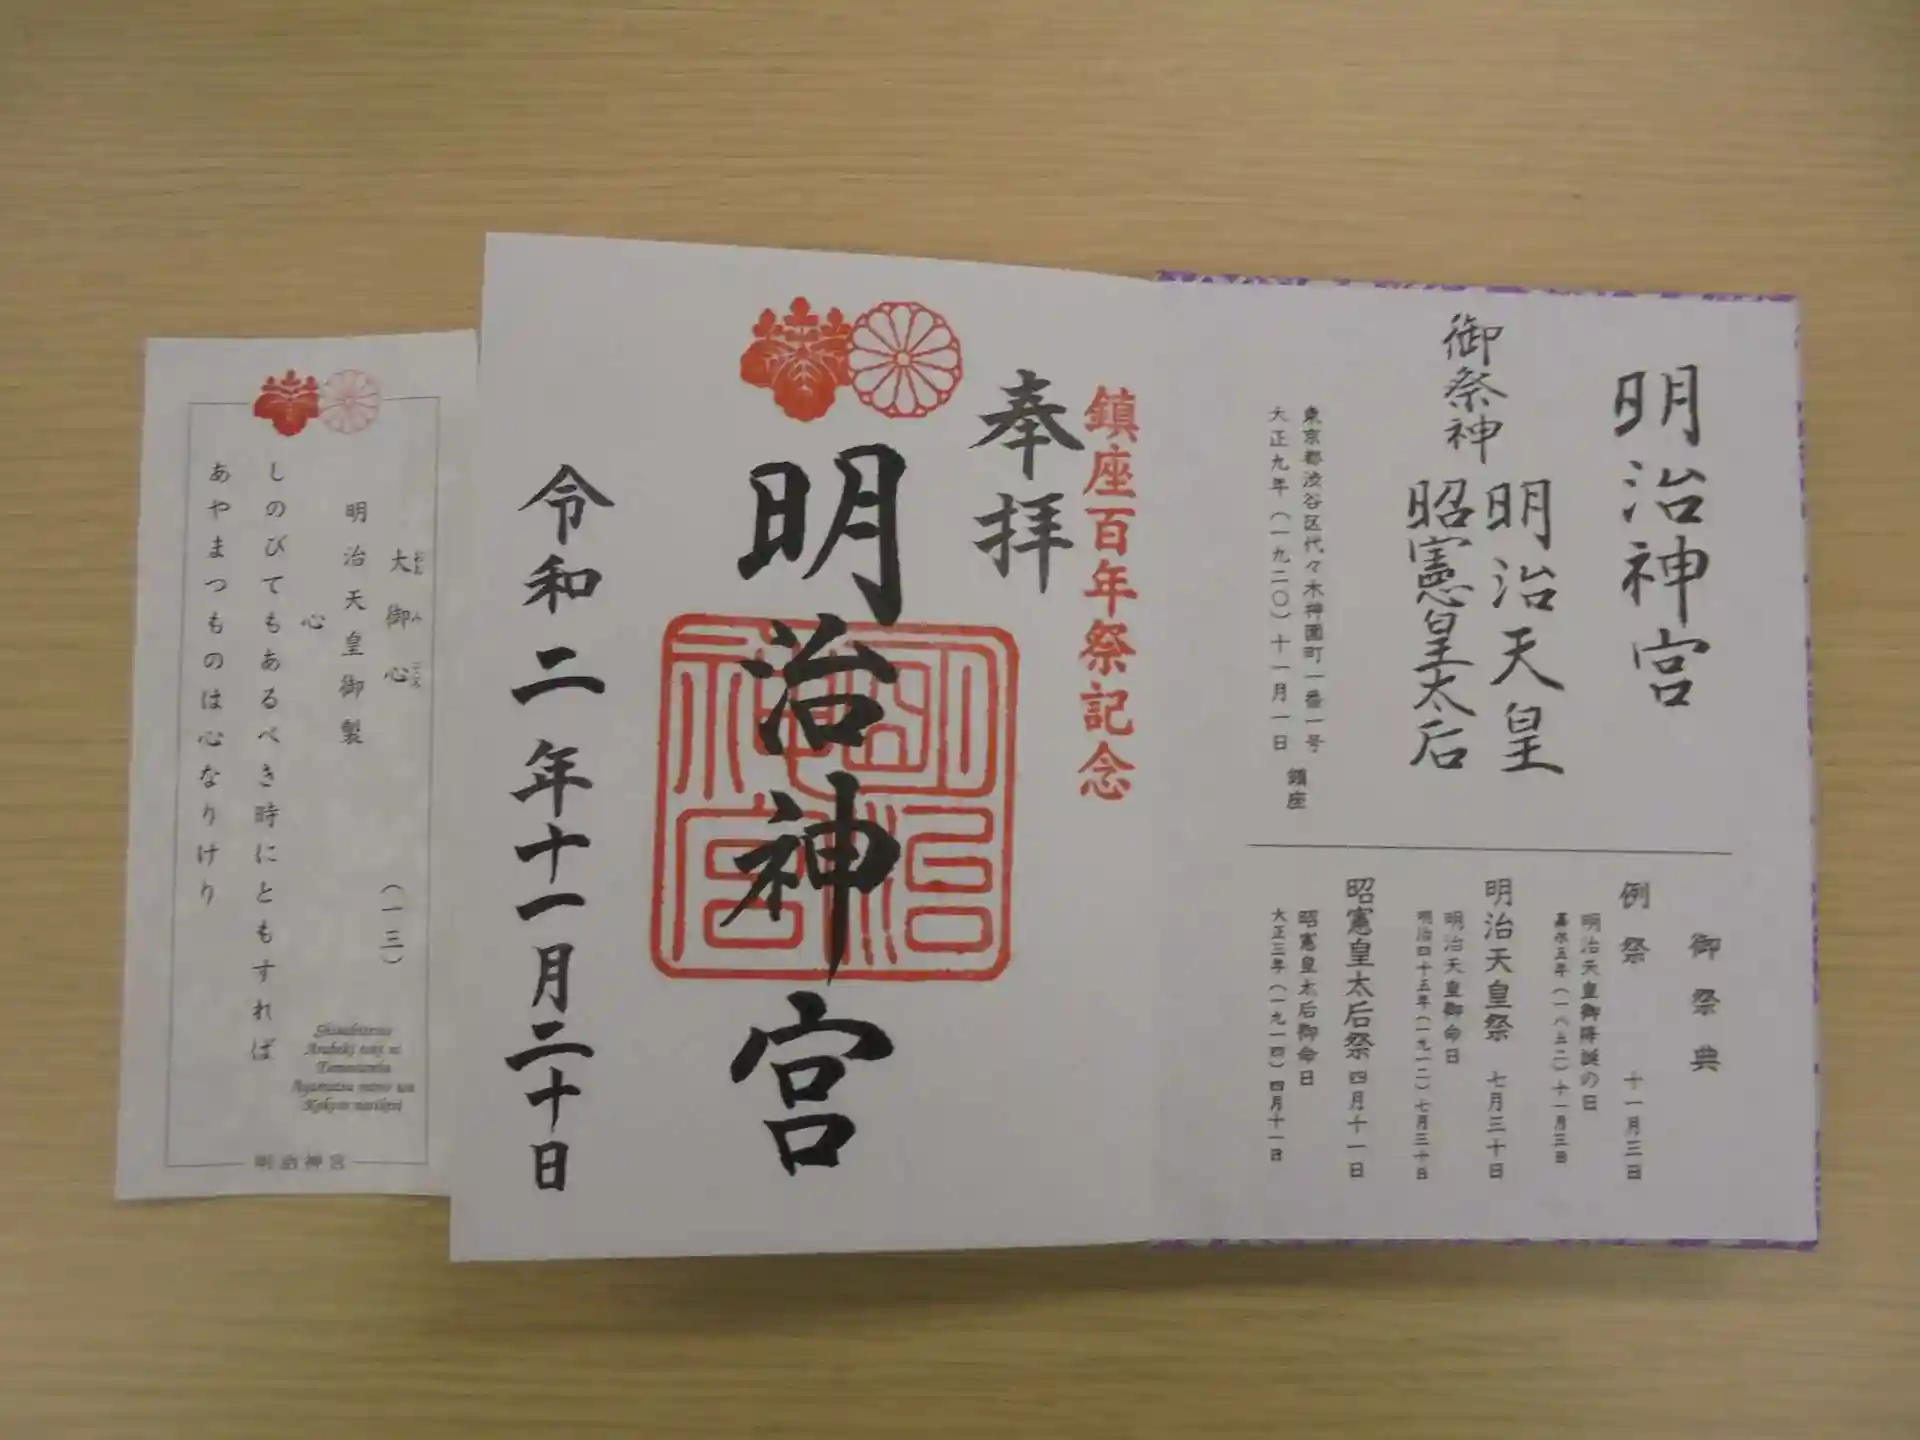 明治神宮
御祭神
明治天皇
昭憲皇太后
東京都渋谷区代々木神園町一番一号
大正九年(一九二〇)十一月一日 鎮座
御祭典
例祭 十一月三日
明治天皇御降誕の日
嘉永五年(一八五二)十一月三日
明治天皇祭 七月三十日
明治天皇御命日
明治四十五年(一九一二)七月三十日
昭憲皇太后祭 四月十一日
昭憲皇太后御命日
大正三年(一九一四)四月十一日
鎮座百年祭記念
奉拝
明治神宮
明治神宮
令和二年十一月二十日
大御心
おお み ごころ
(一三)
明治天皇御製
心
しのびてもあるべき時にともすれば
あやまつものは心なりけり
Shinobitemo
Arubeki toki ni
Tomosureba
Ayamatsu mono wa
Kokoro narikeri
明治神宮